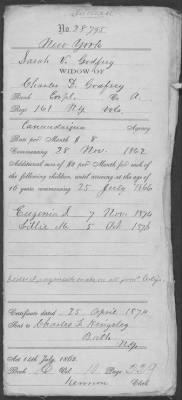 No. 28,795
New York
Sarah V. Godfrey
WIDOW OF
Charles D. Godfrey
Rank Corpl. Co A.
Reg't 161 N.Y. vols.
Canandaigua Agency
Rate per Month $ 8
Commencing 28 Nov. 1862
Additional sum of $2 per Month for each of
the following children, until arriving at the age of
16 years commencing 25 July 1866
Eugenia S 7 Nov. 1874
Lillie M. 5 Oct 1876
Certificate dated 25 April 1874
Sent to Charles L Kingsley
Bath
N.Y.
Act 14th July, 1862.
Book Vol. Page 229
Clerk